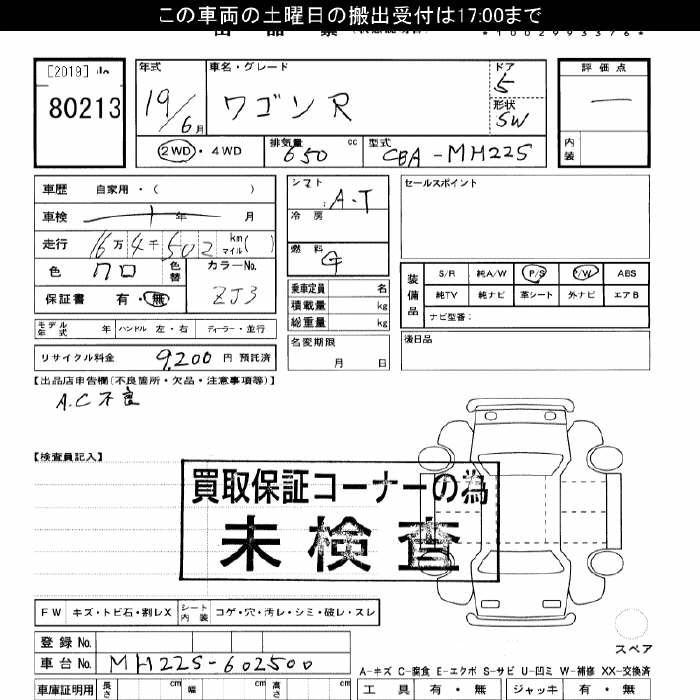 この車両の土曜日の搬出受付は17:00まで
*1002993376*
[2019]
80213
年式
19/6月
車名・グレード
ワゴンR
ドア
5
形状
SW
評価点
内装
2WD・4WD
排気量 650 cc
型式 CBA-MH22S
車歴 自家用・( )
車検 年 月
走行 16万4千502 km マイル( )
色 クロ 色替
カラーNo. ZJ3
保証書 有・無
シフト A・T
冷房
燃料 G
乗車定員 名
積載量 kg
総重量 kg
名変期限
月 日
セールスポイント
装備品
S/R 純A/W P/S P/W ABS
純TV 純ナビ 革シート 外ナビ エアB
ナビ型番:
後日品
モデル年式 年 ハンドル 左・右 ディーラー・並行
リサイクル料金 9,200 円 預託済
【出品店申告欄(不良箇所・欠品・注意事項等)】
A.C不良
【検査員記入】
買取保証コーナーの為
未検査
FW キズ・トビ石・割レX シート内装 コゲ・穴・汚レ・シミ・破レ・スレ
スペア
登録No.
車台No. MH22S-602500
A-キズ C-腐食 E-エクボ S-サビ U-凹ミ W-補修 XX-交換済
車庫証明用 長さ cm 幅 cm 高さ cm
工具 有・無 ジャッキ 有・無